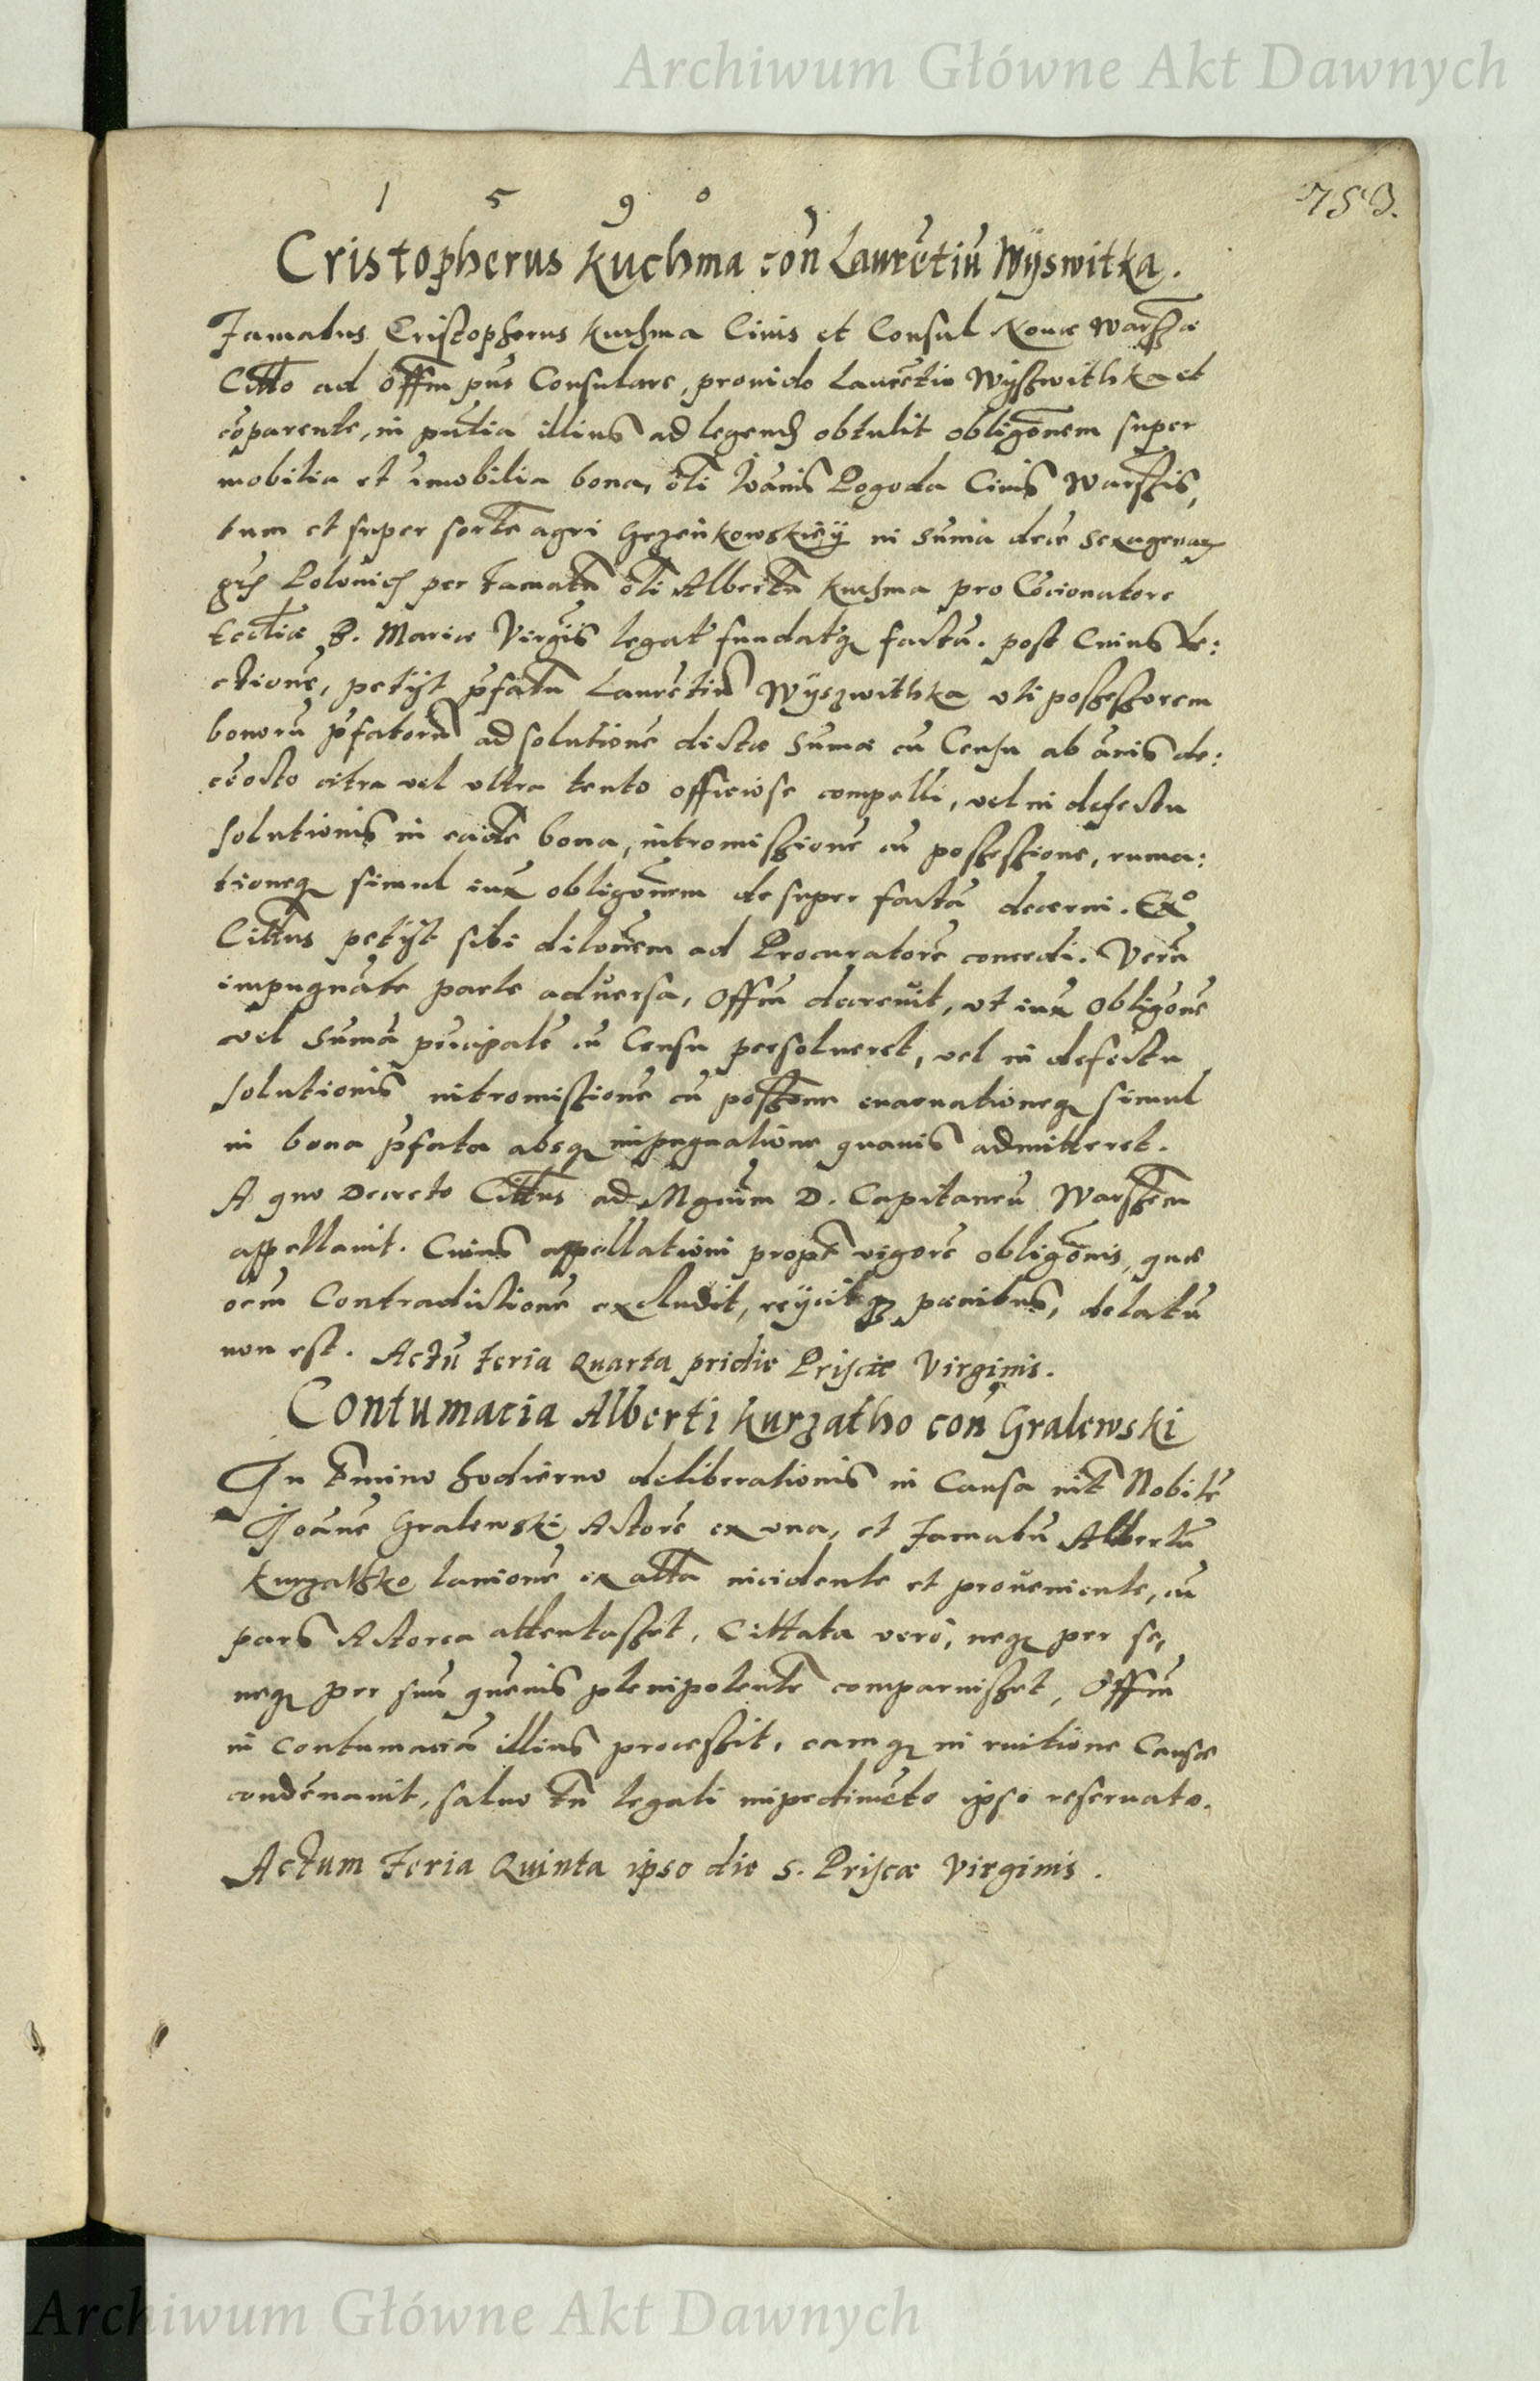 Archiwum Główne Akt Dawnych
1 5 9 0
753.
Cristopherus Kuchma con Laurētiū Wÿswitka.
Famatus Cristopherus Kuchma Ciuis et Consul Nouæ Warsꝫæ
Citto ad offm pns Consulare, prouido Laurētio Wÿszwithka et
cōparente, in pntia illius ad legend obtulit obligōnem super
mobilia et imobilia bona, oli Ioānis Pogoda Ciuis Warszis,
tum et super sorte agri Grzeńkowskieÿ in Suma dece Sexagenaꝝ
grs Polonic per Famatū oli Albertū Kuchma pro Cōcionatore
Eccliæ B. Mariæ Virgīs legat fundatqꝫ factū. post Cuius le:
ctionē, petijt pfatū Laurētiū Wÿszwithka vti possessorem
bonorū pfatorū ad solutionē dictæ Sumæ cū Censu ab ānis de:
cē octo citra vel vltra tento officiose compelli, vel in defectu
solutionis in eadē bona, intromissionē cū possessione, euacua:
tioneqꝫ simul iux obligōnem desuper factā decerni. Exº
Cittus petijt sibi dilōnem ad Procuratorē concedi. Verū
impugnāte parte aduersa, Offm decreuit, vt iux Obligōnē
vel Sumā pricipalē cū Censu persolueret, vel in defectu
solutionis intromissionē cū possōne euacuationeqꝫ simul
in bona pfata absqꝫ impugnatione quauis admitteret.
A quo Decreto Cittus ad Mgcum D. Capitaneū Warszem
appellauit. Cuius appellationi propt vigorē obligōnis, quæ
oem Contradictionē excludit, reijcitqꝫ pœnitus, delatū
non est. Actū Feria Quarta pridie Priscæ Virginis.
Contumacia Alberti Kurzatho con Gralewski
In Tmino hodierno deliberationis in Causa int Nobilē
Joānē Gralewski Actorē ex vna, et Famatū Albertū
Kurzathko lanionē ex altā incidente et proueniente, cū
pars Actorea attentasset, Cittata vero, neqꝫ per se,
neqꝫ per suū quēuis plenipotentē comparuisset, Offm
in contumaciā illius processit, eamqꝫ in ruitione Causæ
condēnauit, saluo tn legali impedimēto ipso reseruato.
Actum Feria Quinta ipso die S. Priscæ Virginis.
Archiwum Główne Akt Dawnych